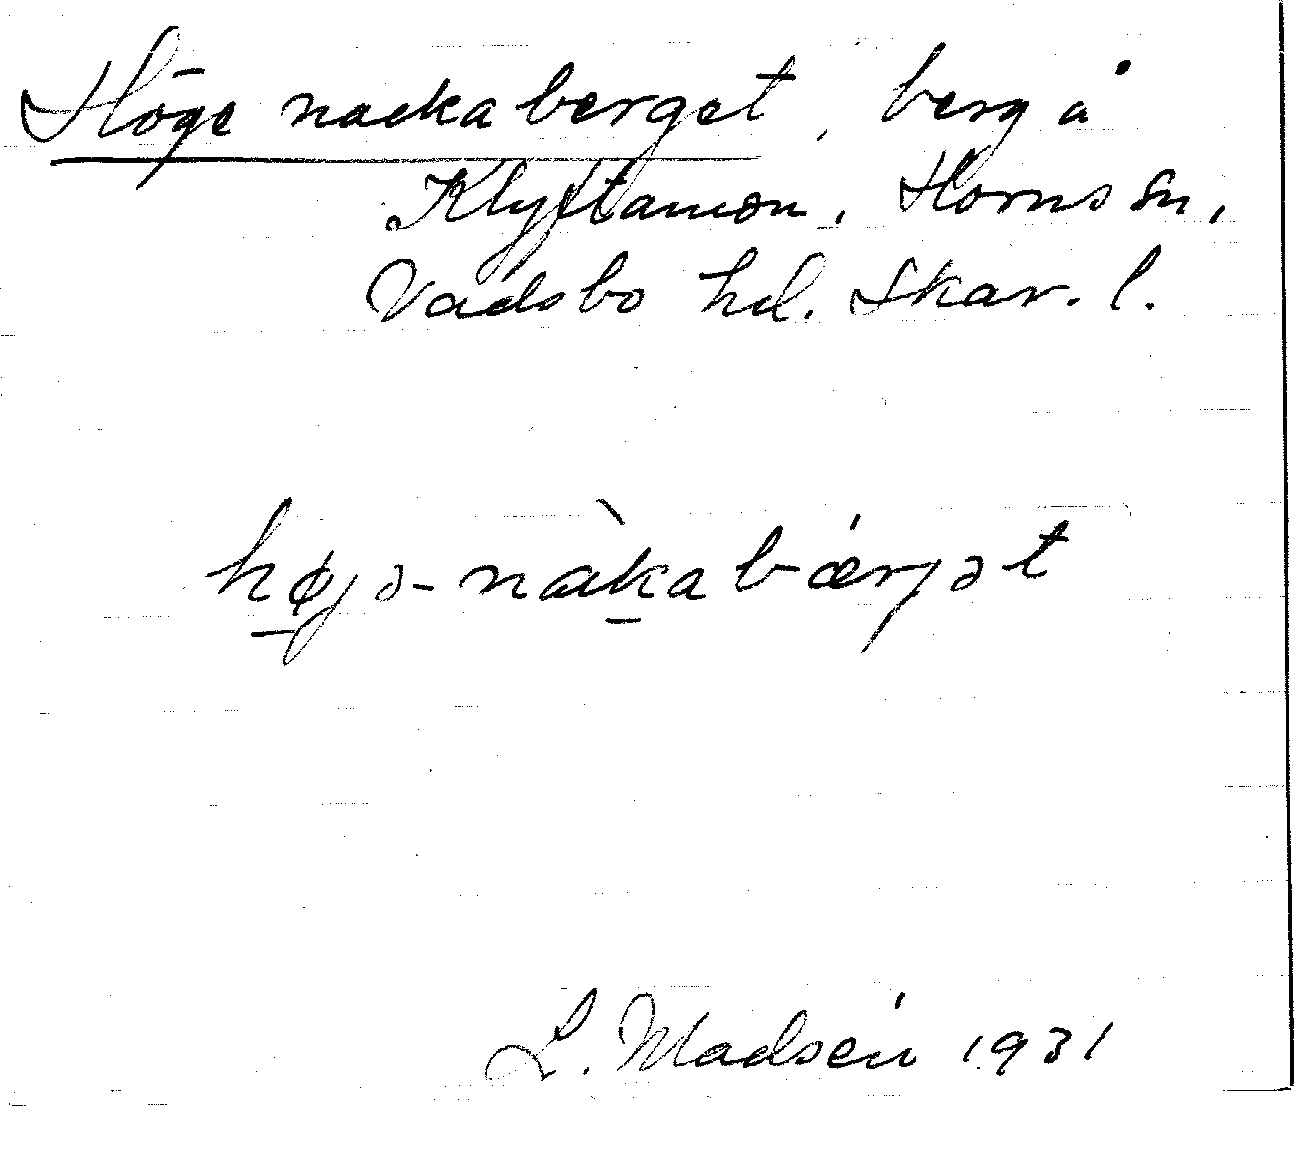 Höge nackaberget, berg å
Klyftamon, Horns sn,
Vadsbo hd. Skar. l.
hø̱jə-nàḵabǽrjət
L. Madsén 1931